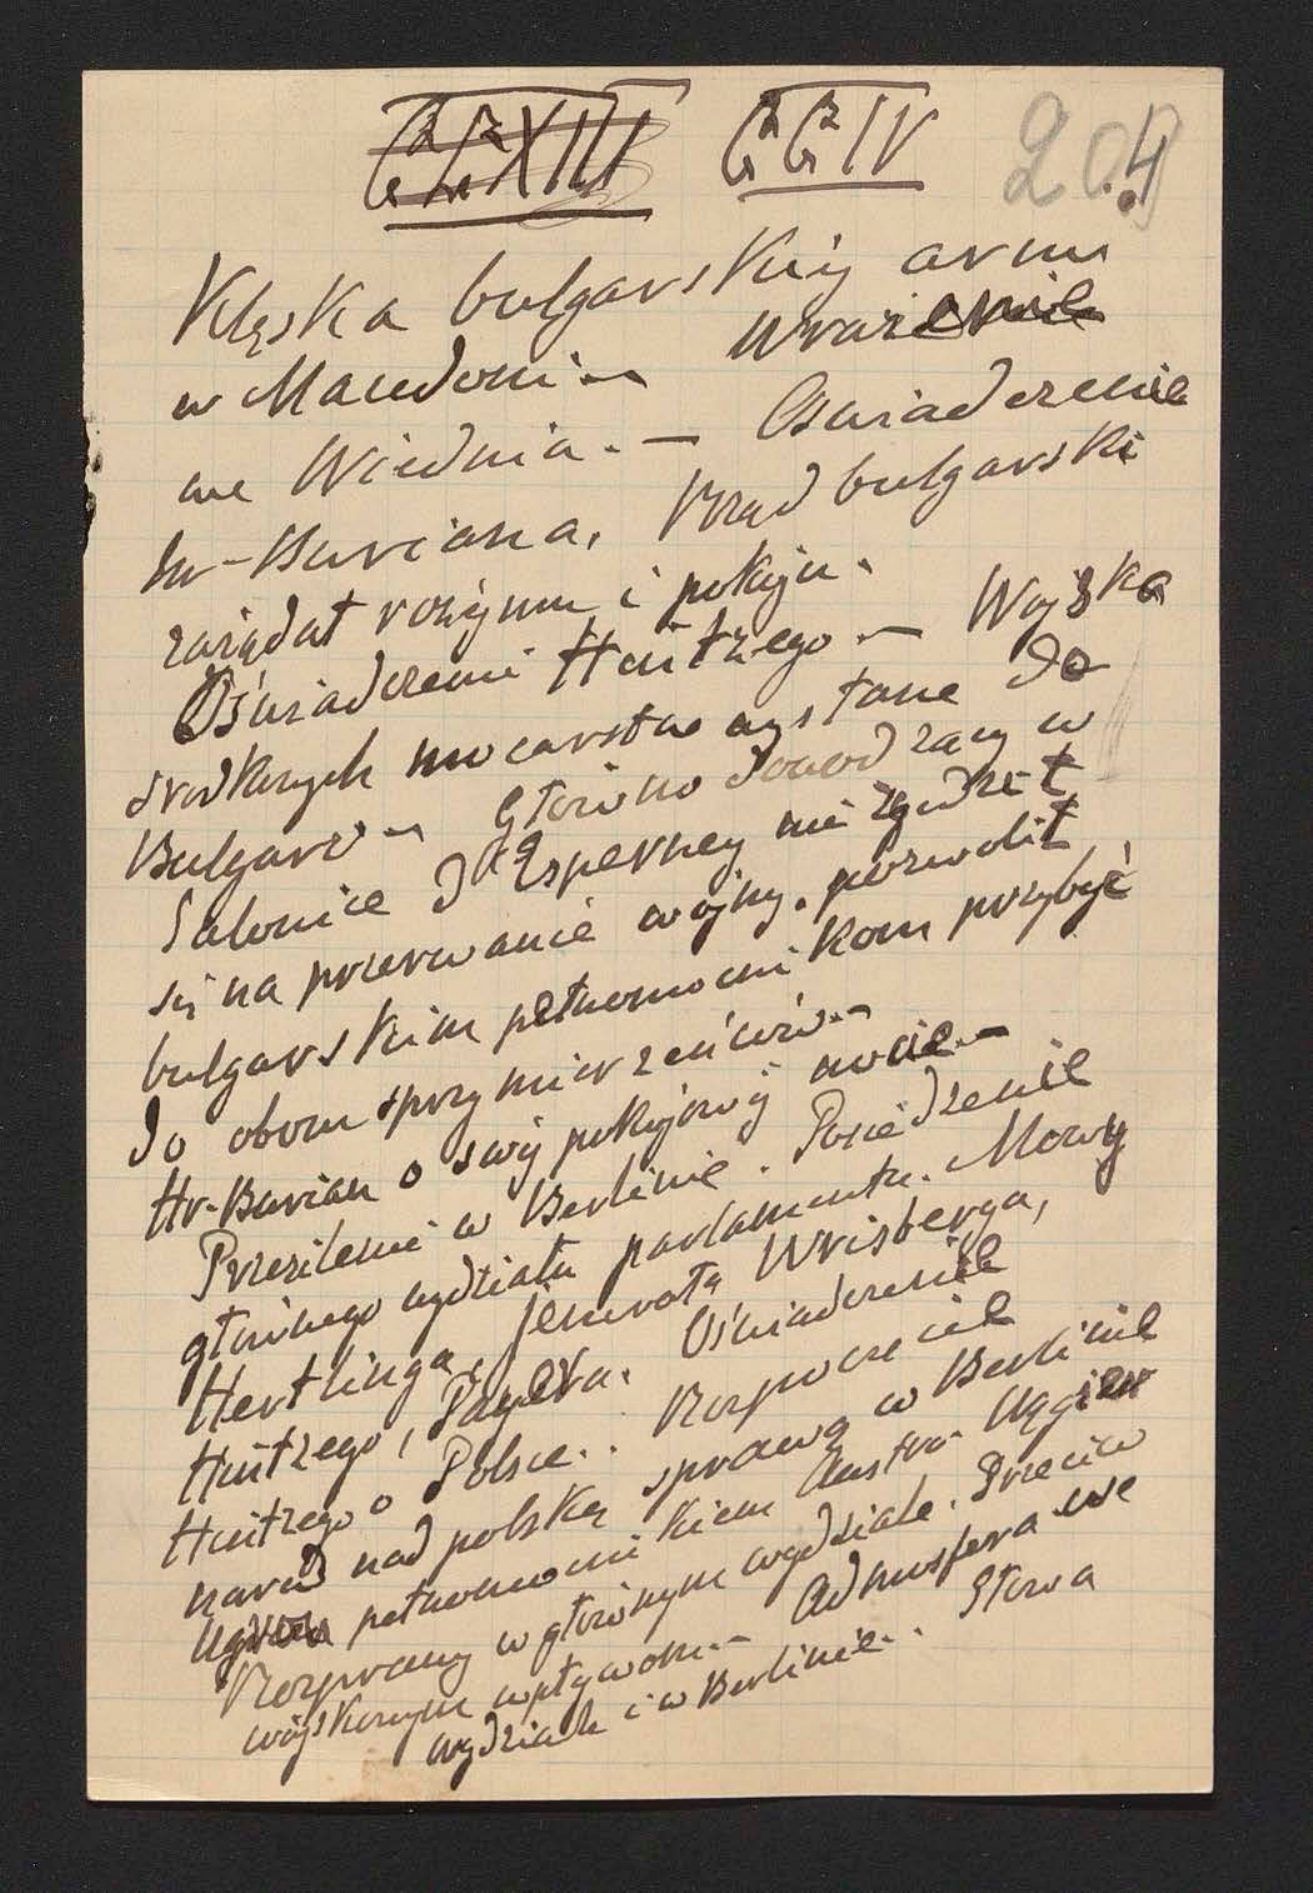 CCXIII CCIV 204
Klęska bulgarskiéj armii
w Macedonii — Wrażenie
we Wiedniu. — Oświadczenie
hr-Buriana. Rząd bulgarski
zażądał rozejmu i pokoju.
Oświadczenie Hintzego — Wojska
środkowych mocarstw wysłane do
Bulgarii — Głównodowodzący w
Salonice d'Esperney nie zgodził
się na przerwanie wojny. pozwolił
bulgarskim pełnomocnikom przybyć
do obozu sprzymierzeńców. —
Hr-Burian o swéj pokojowéj nocie. —
Przesilenie w Berlinie. Posiedzenie
głównego wydziału parlamentu. Mowy
Hertlinga, jenerała Wrisberga,
Hintzego, Payera. Oświadczenie
Hintzego o Polsce. Rozpoczęcie
narad nad polską sprawą w Berlinie
pełnomocnikiem Austro-Węgier
Rozprawy w głównym wydziale. Przeciw
wojskowym wpływom. — Admosfera we
wydziale i w Berlinie. Słowa